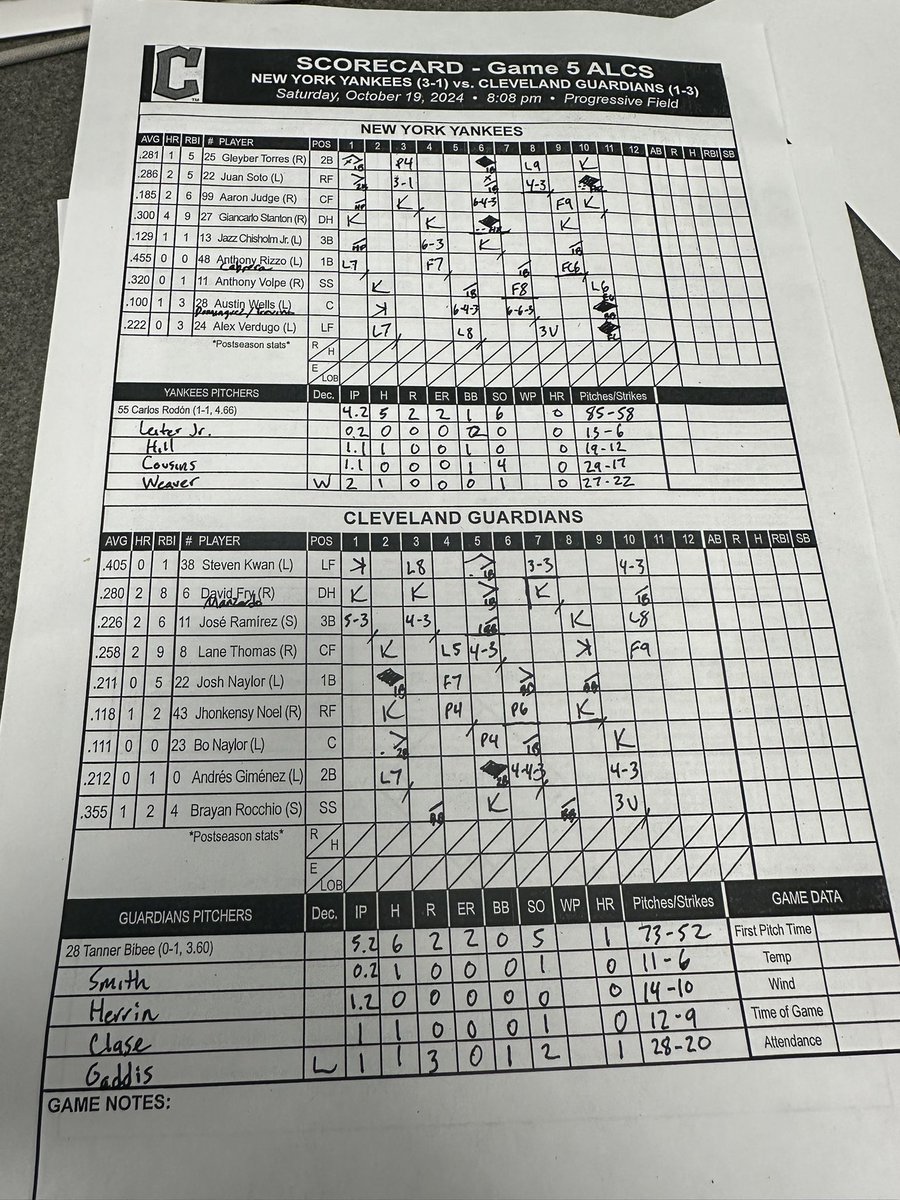 C
SCORECARD - Game 5 ALCS
NEW YORK YANKEES (3-1) vs. CLEVELAND GUARDIANS (1-3)
Saturday, October 19, 2024 • 8:08 pm • Progressive Field
NEW YORK YANKEES
AVG HR RBI # PLAYER POS 1 2 3 4 5 6 7 8 9 10 11 12 AB R H RBI SB
.281 1 5 25 Gleyber Torres (R) 2B 1B P4 1B L9 K
.286 2 5 22 Juan Soto (L) RF 2B 3-1 1B 4-3
.185 2 6 99 Aaron Judge (R) CF K 6-4-3 F9 K
.300 4 9 27 Giancarlo Stanton (R) DH K K HR K
.129 1 1 13 Jazz Chisholm Jr. (L) 3B 6-3 K 1B
.455 0 0 48 Anthony Rizzo (L) 1B L7 F7 1B FC6
Cabrera
.320 0 1 11 Anthony Volpe (R) SS K 1B F8 L6
.100 1 3 28 Austin Wells (L) C K 6-4-3 6-6-3 BB
Dominguez/Trevino
.222 0 3 24 Alex Verdugo (L) LF L7 L8 3U FC
*Postseason stats* R H
E LOB
YANKEES PITCHERS Dec. IP H R ER BB SO WP HR Pitches/Strikes
55 Carlos Rodón (1-1, 4.66) 4.2 5 2 2 1 6 0 85-58
Leiter Jr. 0.2 0 0 0 2 0 0 13-6
Hill 1.1 1 0 0 1 0 0 19-12
Cousins 1.1 0 0 0 1 4 0 29-17
Weaver W 2 1 0 0 0 1 0 27-22
CLEVELAND GUARDIANS
AVG HR RBI # PLAYER POS 1 2 3 4 5 6 7 8 9 10 11 12 AB R H RBI SB
.405 0 1 38 Steven Kwan (L) LF K L8 1B 3-3 4-3
.280 2 8 6 David Fry (R) DH K K 1B K 1B
Manzardo
.226 2 6 11 José Ramírez (S) 3B 5-3 4-3 K L8
.258 2 9 8 Lane Thomas (R) CF K L5 4-3 K F9
.211 0 5 22 Josh Naylor (L) 1B 1B F7 BB BB
.118 1 2 43 Jhonkensy Noel (R) RF K P4 P6 K
.111 0 0 23 Bo Naylor (L) C 2B P4 1B K
.212 0 1 0 Andrés Giménez (L) 2B L7 2B 4-4-3 4-3
.355 1 2 4 Brayan Rocchio (S) SS BB K BB 3U
*Postseason stats* R H
E LOB
GUARDIANS PITCHERS Dec. IP H R ER BB SO WP HR Pitches/Strikes GAME DATA
28 Tanner Bibee (0-1, 3.60) 5.2 6 2 2 0 5 1 73-52 First Pitch Time
Smith 0.2 1 0 0 0 1 0 11-6 Temp
Herrin 1.2 0 0 0 0 0 0 14-10 Wind
Clase 1 1 0 0 0 1 0 12-9 Time of Game
Gaddis L 1 1 3 0 1 2 1 28-20 Attendance
GAME NOTES: